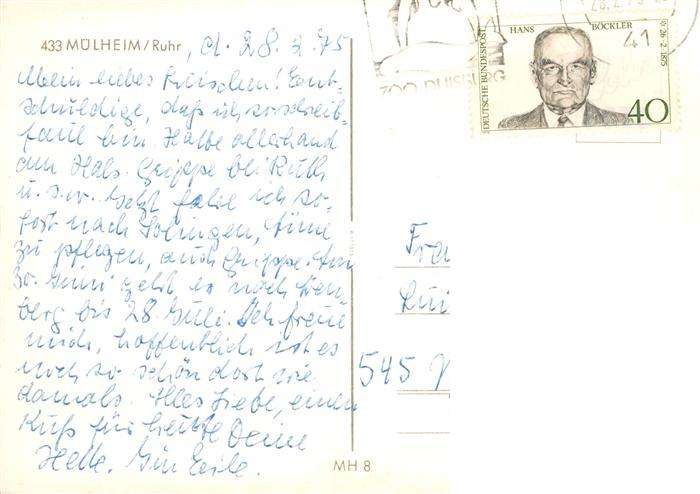 433 MÜLHEIM/Ruhr, d. 28.2.75
Mein liebes Luischen! Ent-
schuldige, daß ich so schreib-
faul bin. Hatte allerhand
am Hals. Grippe bei Ruth
u.s.w. Jetzt fahre ich so-
fort nach Solingen, Änne
zu pflegen, auch Grippe. Am
30. Juni geht es nach
berg bis 28. Juli. Ich freue
mich, hoffentlich ist es
noch so schön dort wie
damals. Alles Liebe, einen
Kuß für heute Deine
Helle. In Eile.
MH 8
28.2.75
ZOO DUISBURG
41
HANS BÖCKLER
DEUTSCHE BUNDESPOST
*26·2·1875
40
Frau
Lui
545